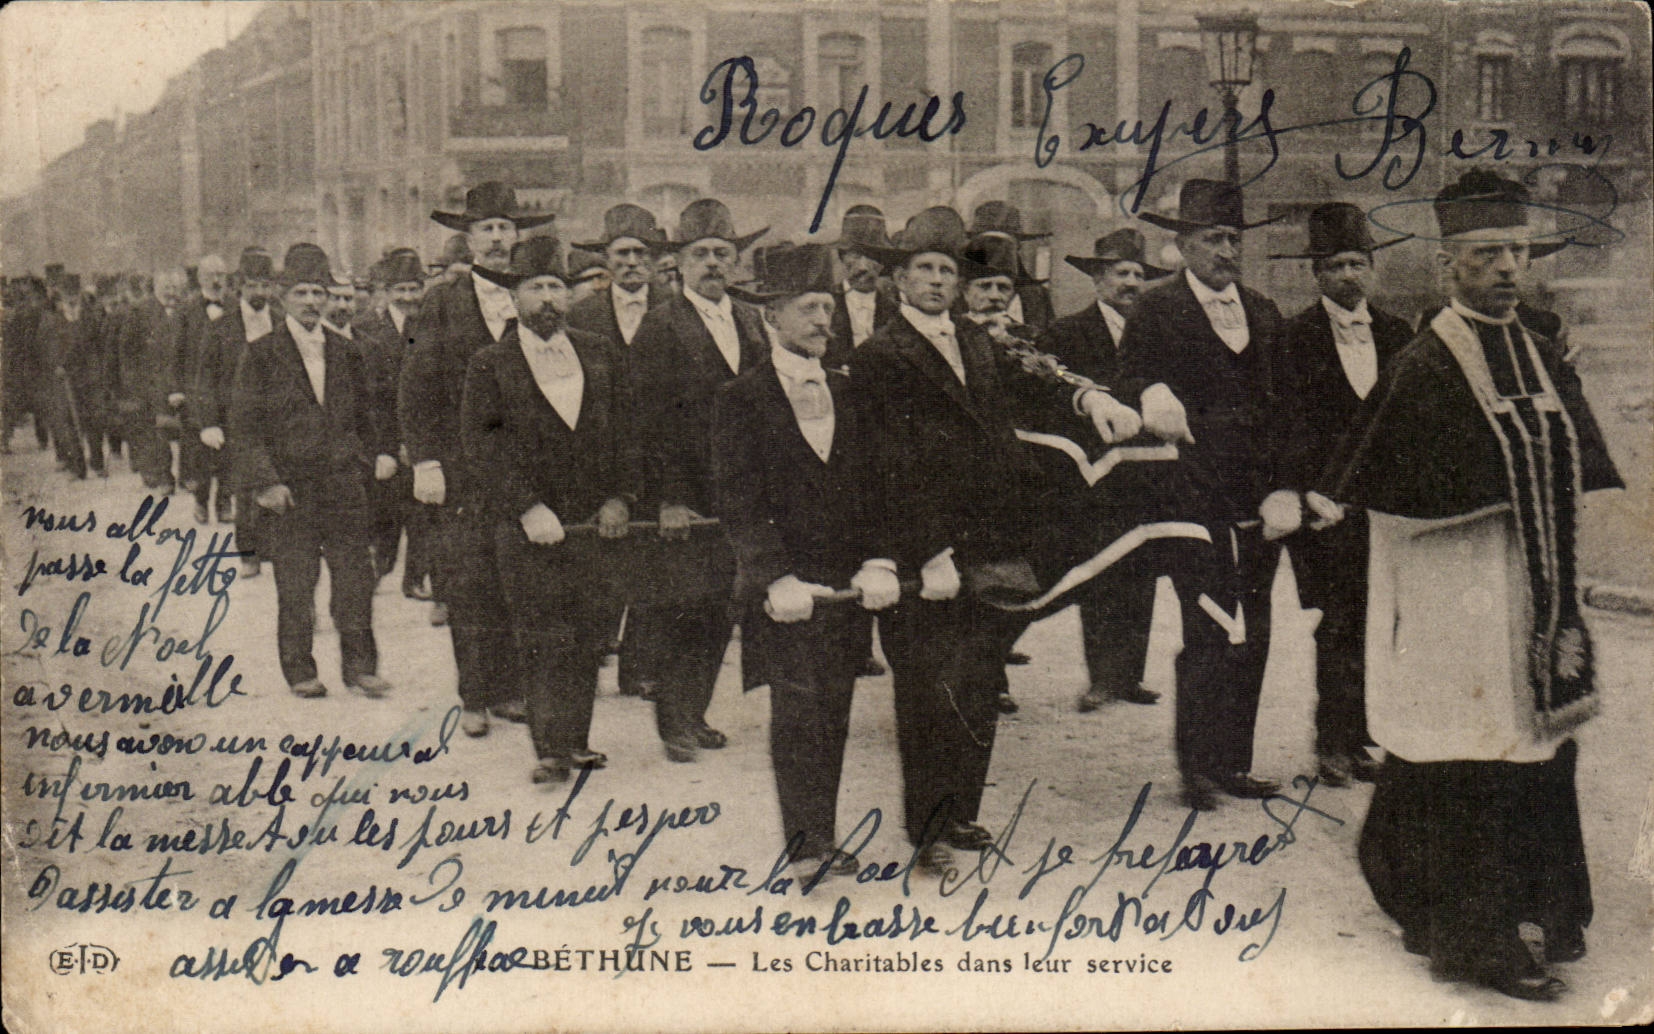 Roques Exupers Bern
nous allon
passe la fette
De la Noel
a vermeille
nous avon un cappoural
infirmier abbe qui nous
dit la messe tou les jours et j'espero
Dassister a la messe De minuit pour la Noel et je
je vous enbrasse bien fort a tous
assister a
E.L.D BÉTHUNE — Les Charitables dans leur service